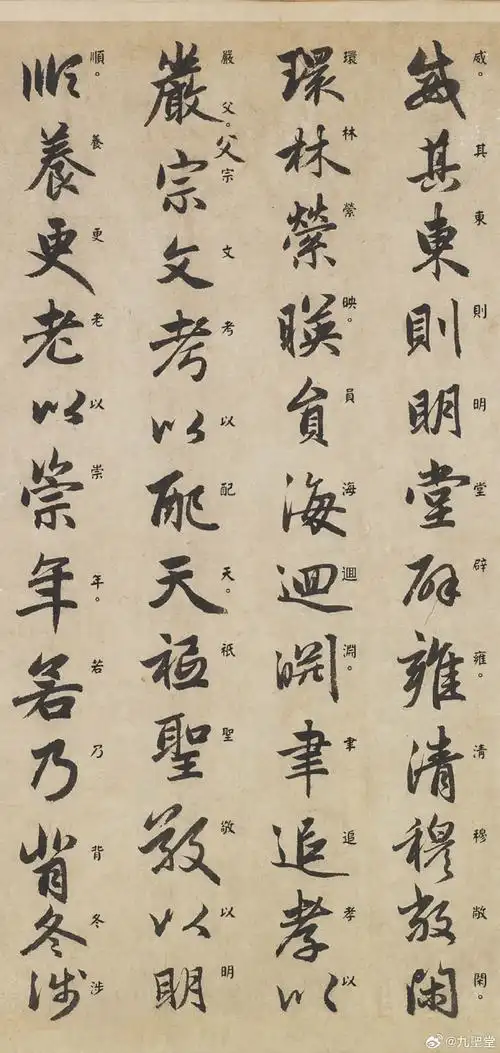 威。其東則明堂辟雍。清穆敞閑。
威其東則明堂辟雍清穆敞閑
環林縈映。員海迴淵。聿追孝以
環林縈暎員海迴淵聿追孝以
嚴父。宗文考以配天。祇聖敬以明
嚴父宗文考以配天祇聖敬以明
順。養更老以崇年。若乃背冬涉
順養更老以崇年若乃背冬涉
@九聖堂